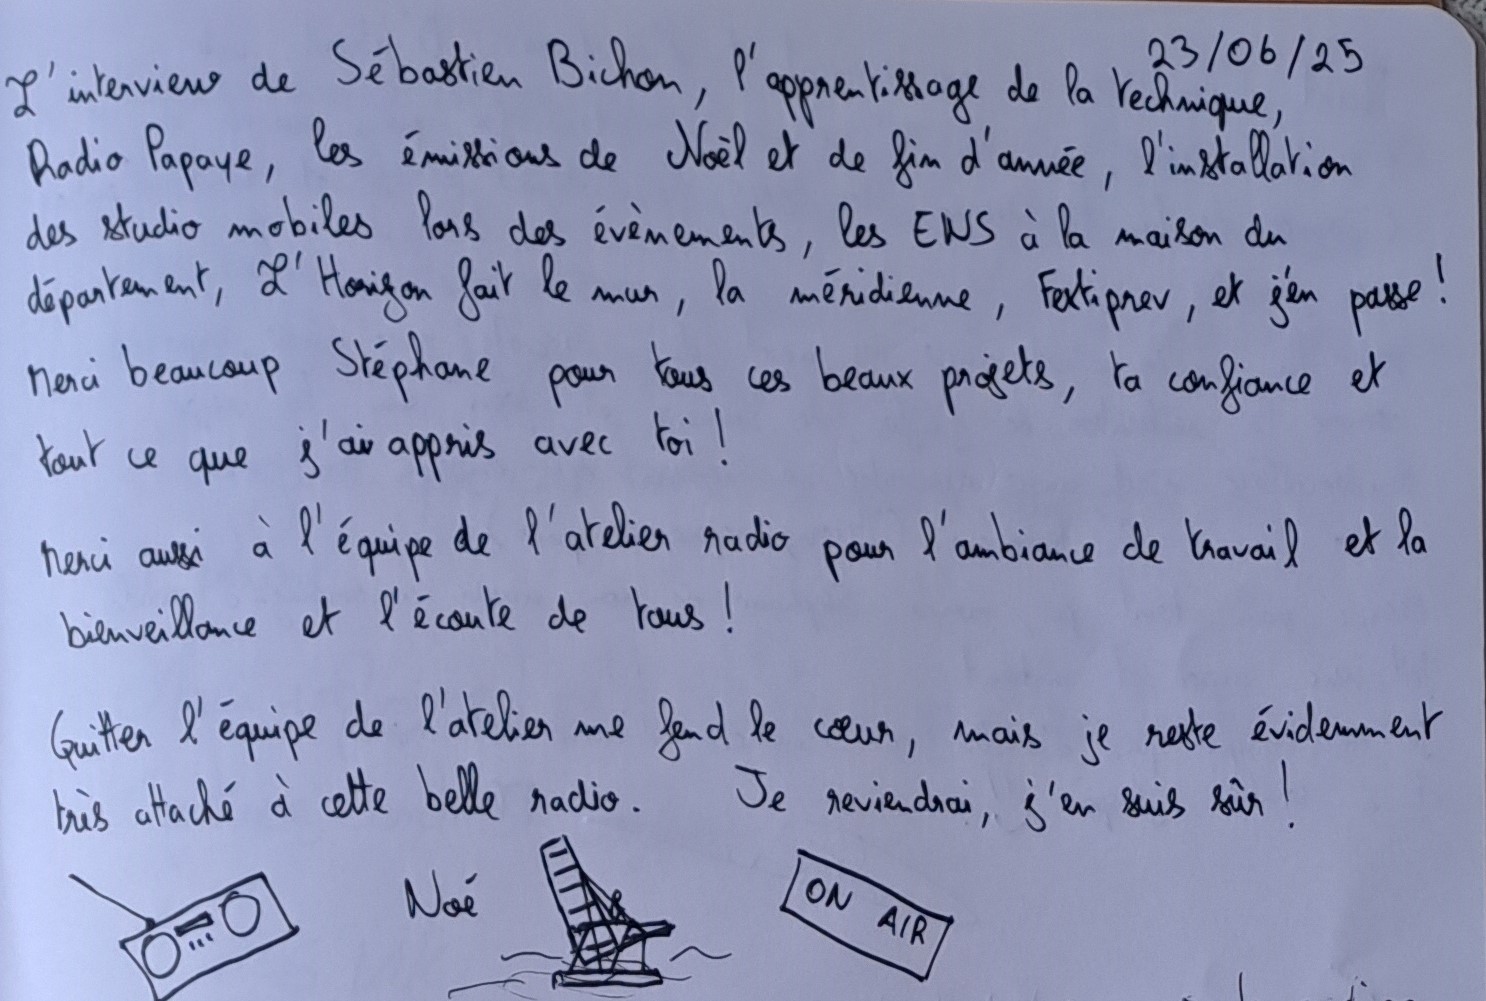 23/06/25
L'interview de Sébastien Bichon, l'apprentissage de la technique,
Radio Papaye, les émissions de Noël et de fin d'année, l'installation
des studio mobiles lors des évènements, les ENS à la maison du
département, L'Horizon fait le mur, la méridienne, Festiprev, et j'en passe !
Merci beaucoup Stéphane pour tous ces beaux projets, ta confiance et
tout ce que j'ai appris avec toi !
Merci aussi à l'équipe de l'atelier radio pour l'ambiance de travail et la
bienveillance et l'écoute de tous !
Quitter l'équipe de l'atelier me fend le cœur, mais je reste évidemment
très attaché à cette belle radio. Je reviendrai, j'en suis sûr !
Noé
ON AIR